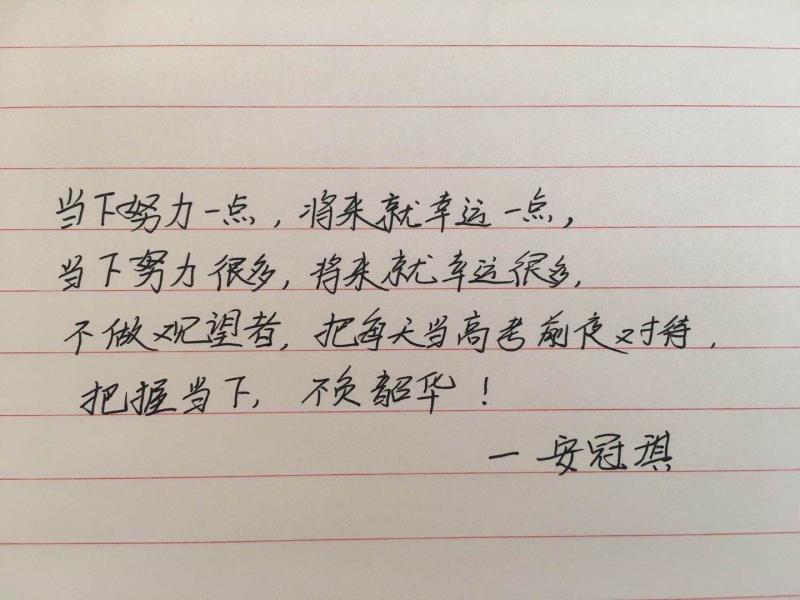 当下努力一点，将来就幸运一点，
当下努力很多，将来就幸运很多，
不做观望者，把每天当高考前夜对待，
把握当下，不负韶华！
—安冠琪